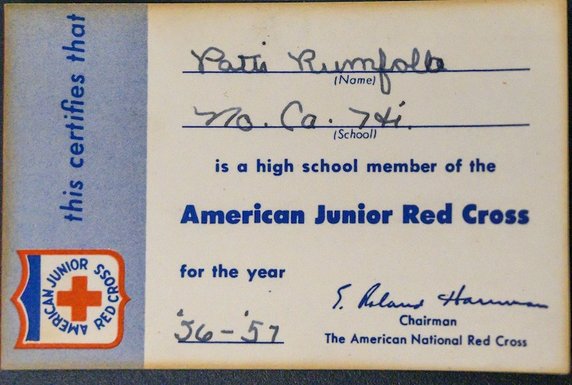 this certifies that
Patti Rumfolla
(Name)
No. Ca. Hi.
(School)
is a high school member of the
American Junior Red Cross
for the year
'56-'57
E. Roland Harriman
Chairman
The American National Red Cross
AMERICAN JUNIOR RED CROSS